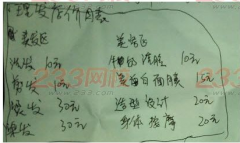 理发店价目表
美发区 美容区
洗发 10元 10元
剪发 10元 蛋白面膜 15元
烫发 50元 造型设计 20元
染发 50元 身体按摩 20元
233网校